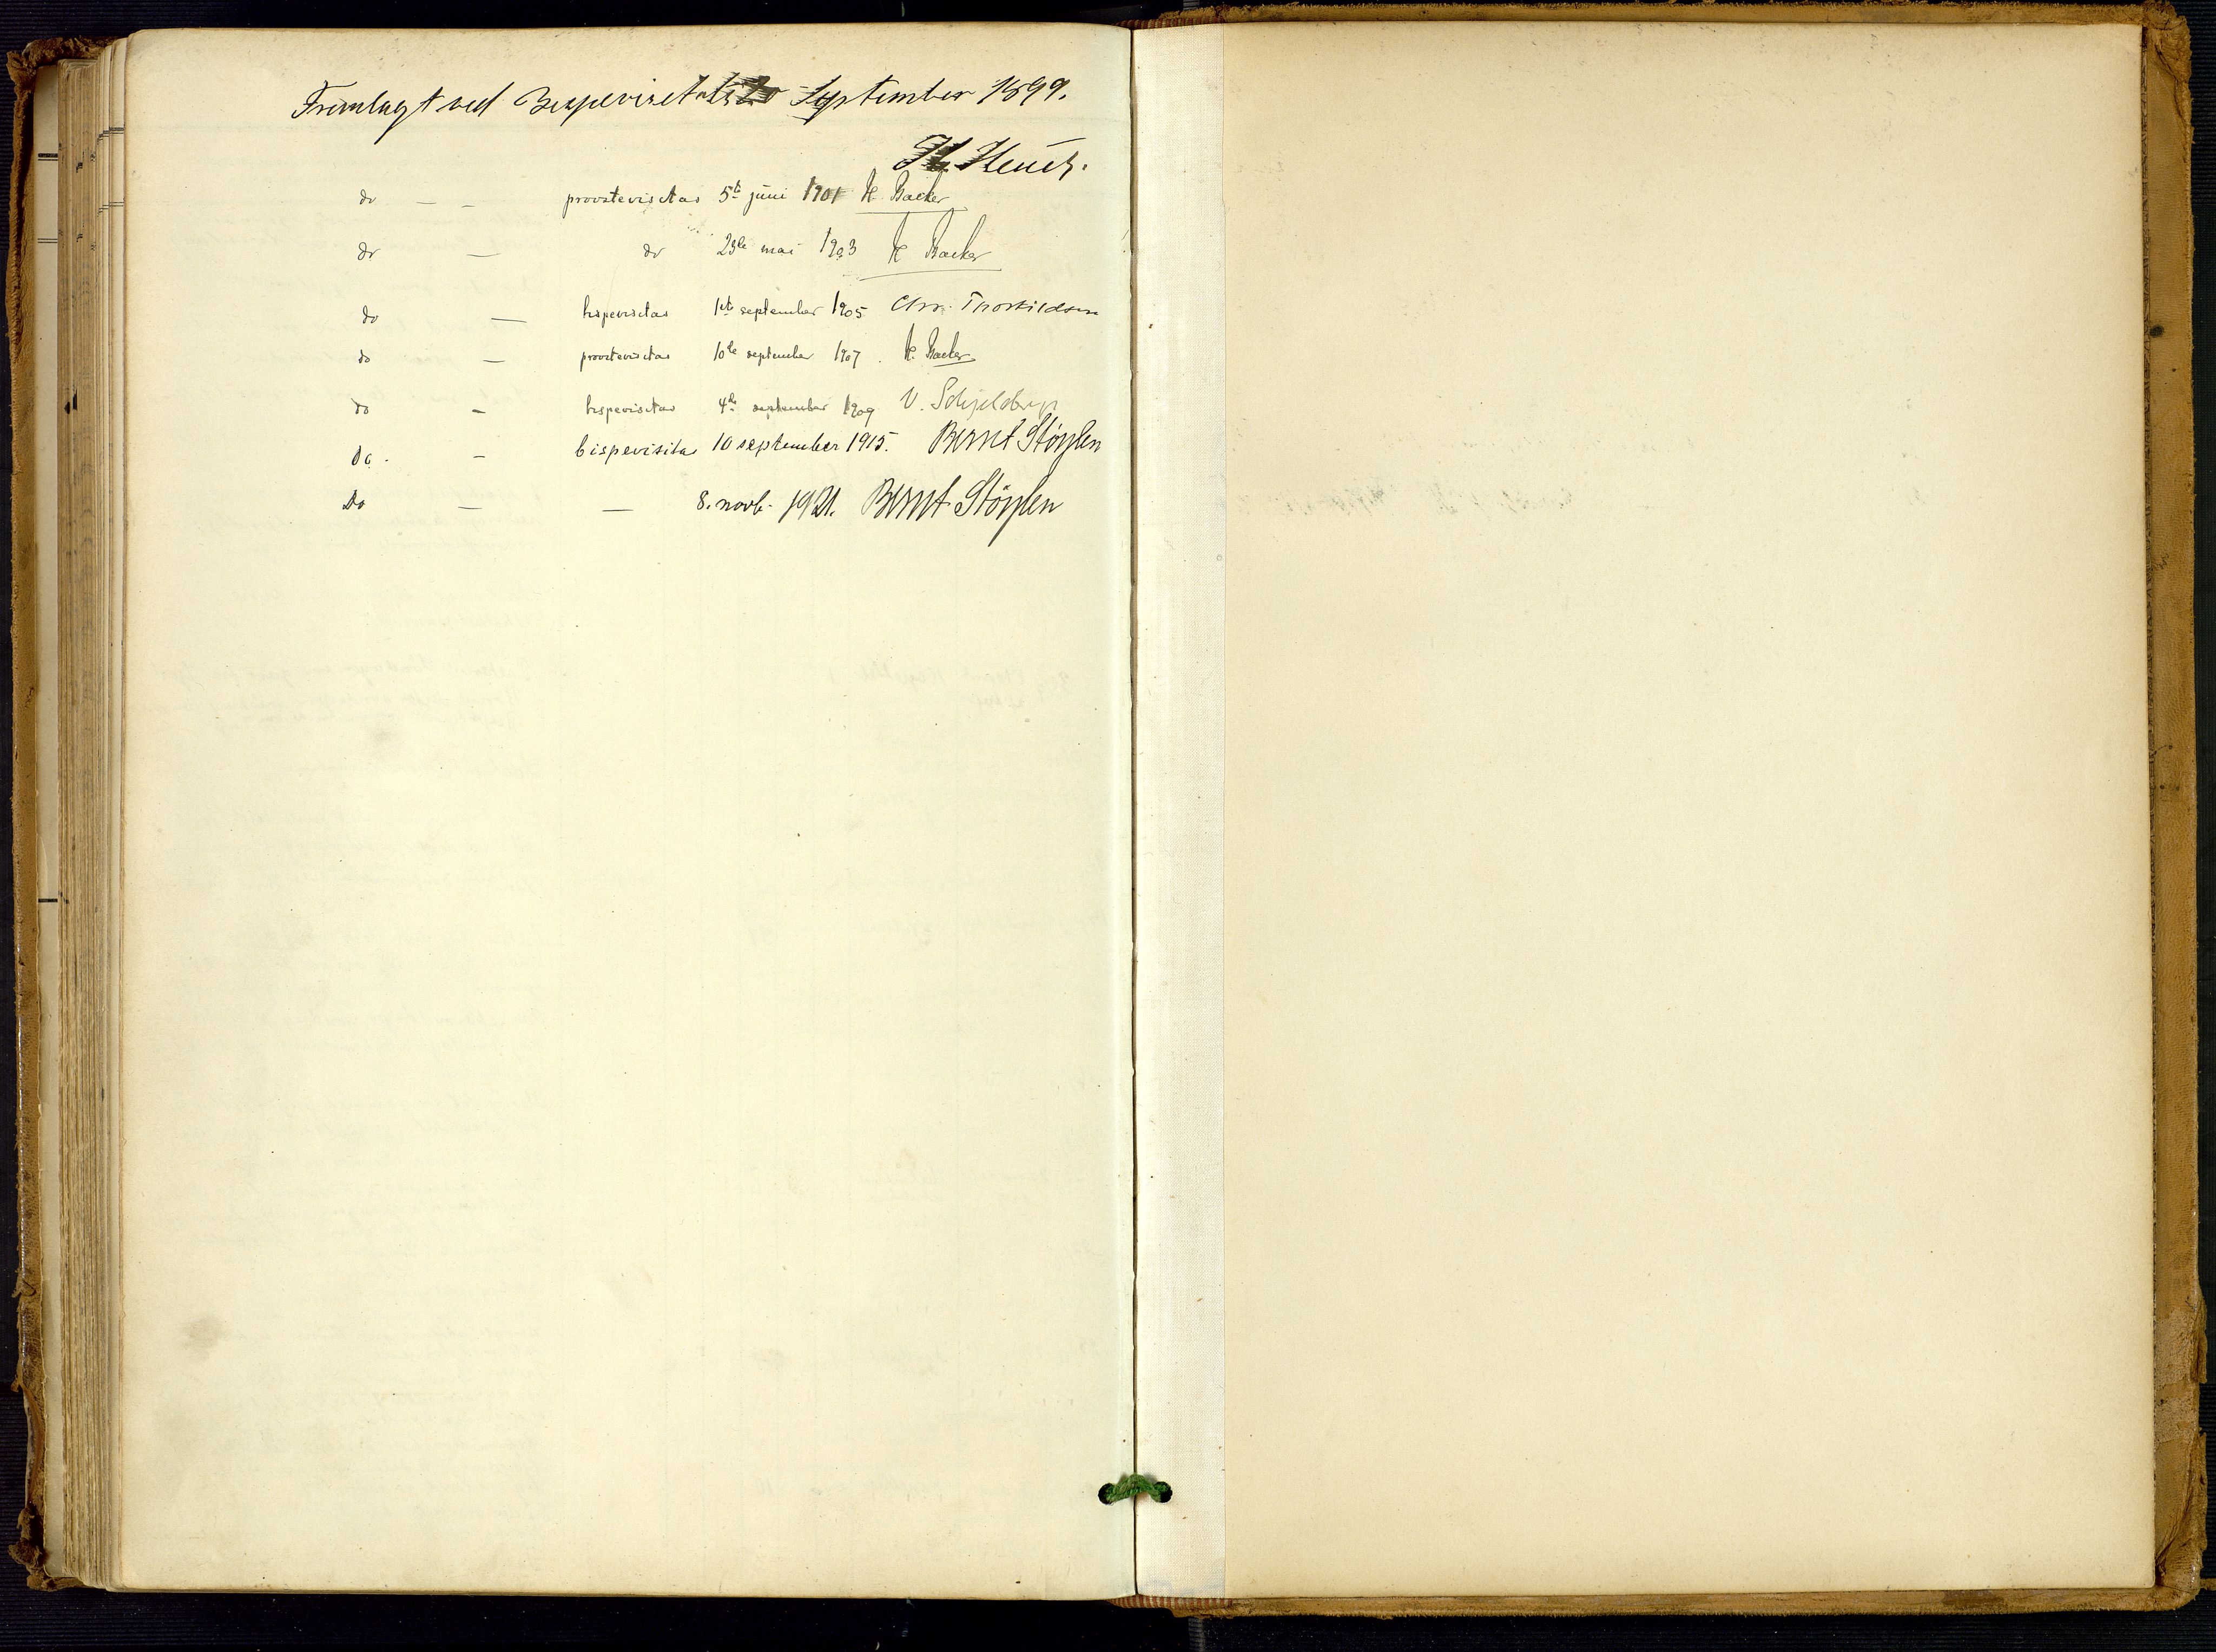 Fremlagt ved Bispevisitats September 1899.
H. Heuch.
do — — provstevisitas 5te juni 1901 H. Backer
do — do 23de mai 1903 H Backer
do — bispevisitas 1ste september 1905 Chr. Thorkildsen
do — provstevisitas 10de september 1907. H. Backer
do — bispevisitas 4de september 1909 V. Schjelderup
do. — bispevisitas 10 september 1915. Bernt Støylen
Do — — 8. novb. 1921. Bernt Støylen